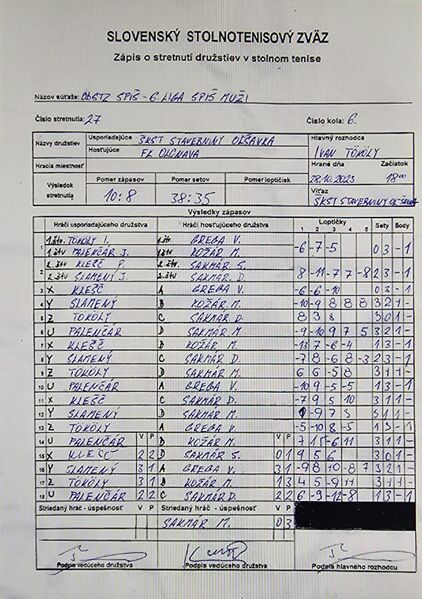 SLOVENSKÝ STOLNOTENISOVÝ ZVÄZ
Zápis o stretnutí družstiev v stolnom tenise
Názov súťaže: OBSTZ SPIŠ - 6. LIGA SPIŠ MUŽI
Číslo stretnutia: 27 Číslo kola: 6.
Názvy družstiev Usporiadajúce ŠKST STAVEBNINY OLŠAVKA Hlavný rozhodca
Hosťujúce FK OLCNAVA IVAN TÖKÖLY
Hracia miestnosť Hrané dňa Začiatok
Výsledok stretnutia Pomer zápasov Pomer setov Pomer loptičiek 28.10.2023 18:00
10:8 38:35 Víťaz
ŠKST STAVEBNINY
Výsledky zápasov
Hráči usporiadajúceho družstva Hráči hosťujúceho družstva Loptičky Sety Body
1 2 3 4 5
1 1.štv. TÖKÖLY I. 1.štv GREGA V. -6 -7 -5 0 3 - 1
1.štv. PALENČÁR J. KOŽÁR M.
2 2.štv KLEŠČ P. 2.štv SAKMÁR S. 8 -11 -7 7 -8 2 3 - 1
2.štv SLAMENÝ J. 2.štv SAKMÁR D.
3 X KLEŠČ A GREGA V. -6 -6 -10 0 3 - 1
4 Y SLAMENÝ B KOŽÁR M. -10 -9 8 8 8 3 2 1 -
5 Z TÖKÖLY C SAKMÁR D. 8 3 8 3 0 1 -
6 U PALENČÁR D SAKMÁR M. -9 -10 9 7 5 3 2 1 -
7 X KLEŠČ B KOŽÁR M. -13 7 -6 -4 1 3 - 1
8 Y SLAMENÝ C SAKMÁR D. -7 8 -6 8 -3 2 3 - 1
9 Z TÖKÖLY D SAKMÁR M. 6 6 -5 8 3 1 1 -
10 U PALENČÁR A GREGA V. -10 9 -5 -5 1 3 - 1
11 X KLEŠČ C SAKMÁR D. -7 9 5 10 3 1 1 -
12 Y SLAMENÝ D SAKMÁR M. -9 7 3 1 1 -
13 Z TÖKÖLY A GREGA V. -5 -10 8 -5 1 3 - 1
14 U PALENČÁR V P B KOŽÁR M. V P 7 15 -6 11 3 1 1 -
15 X KLEŠČ 2 2 D SAKMÁR S. 0 1 9 5 6 3 0 1 -
16 Y SLAMENÝ 3 1 A GREGA V. 3 1 -9 8 -10 8 7 3 2 1 -
17 Z TÖKÖLY 3 1 B KOŽÁR M. 1 3 4 5 -9 11 3 1 1 -
18 U PALENČÁR 2 2 C SAKMÁR D. 2 2 6 -9 -12 -8 1 3 - 1
Striedaný hráč - úspešnosť V P Striedaný hráč - úspešnosť V P
SAKMÁR M. 0 3
Podpis vedúceho družstva Podpis vedúceho družstva Podpis hlavného rozhodcu